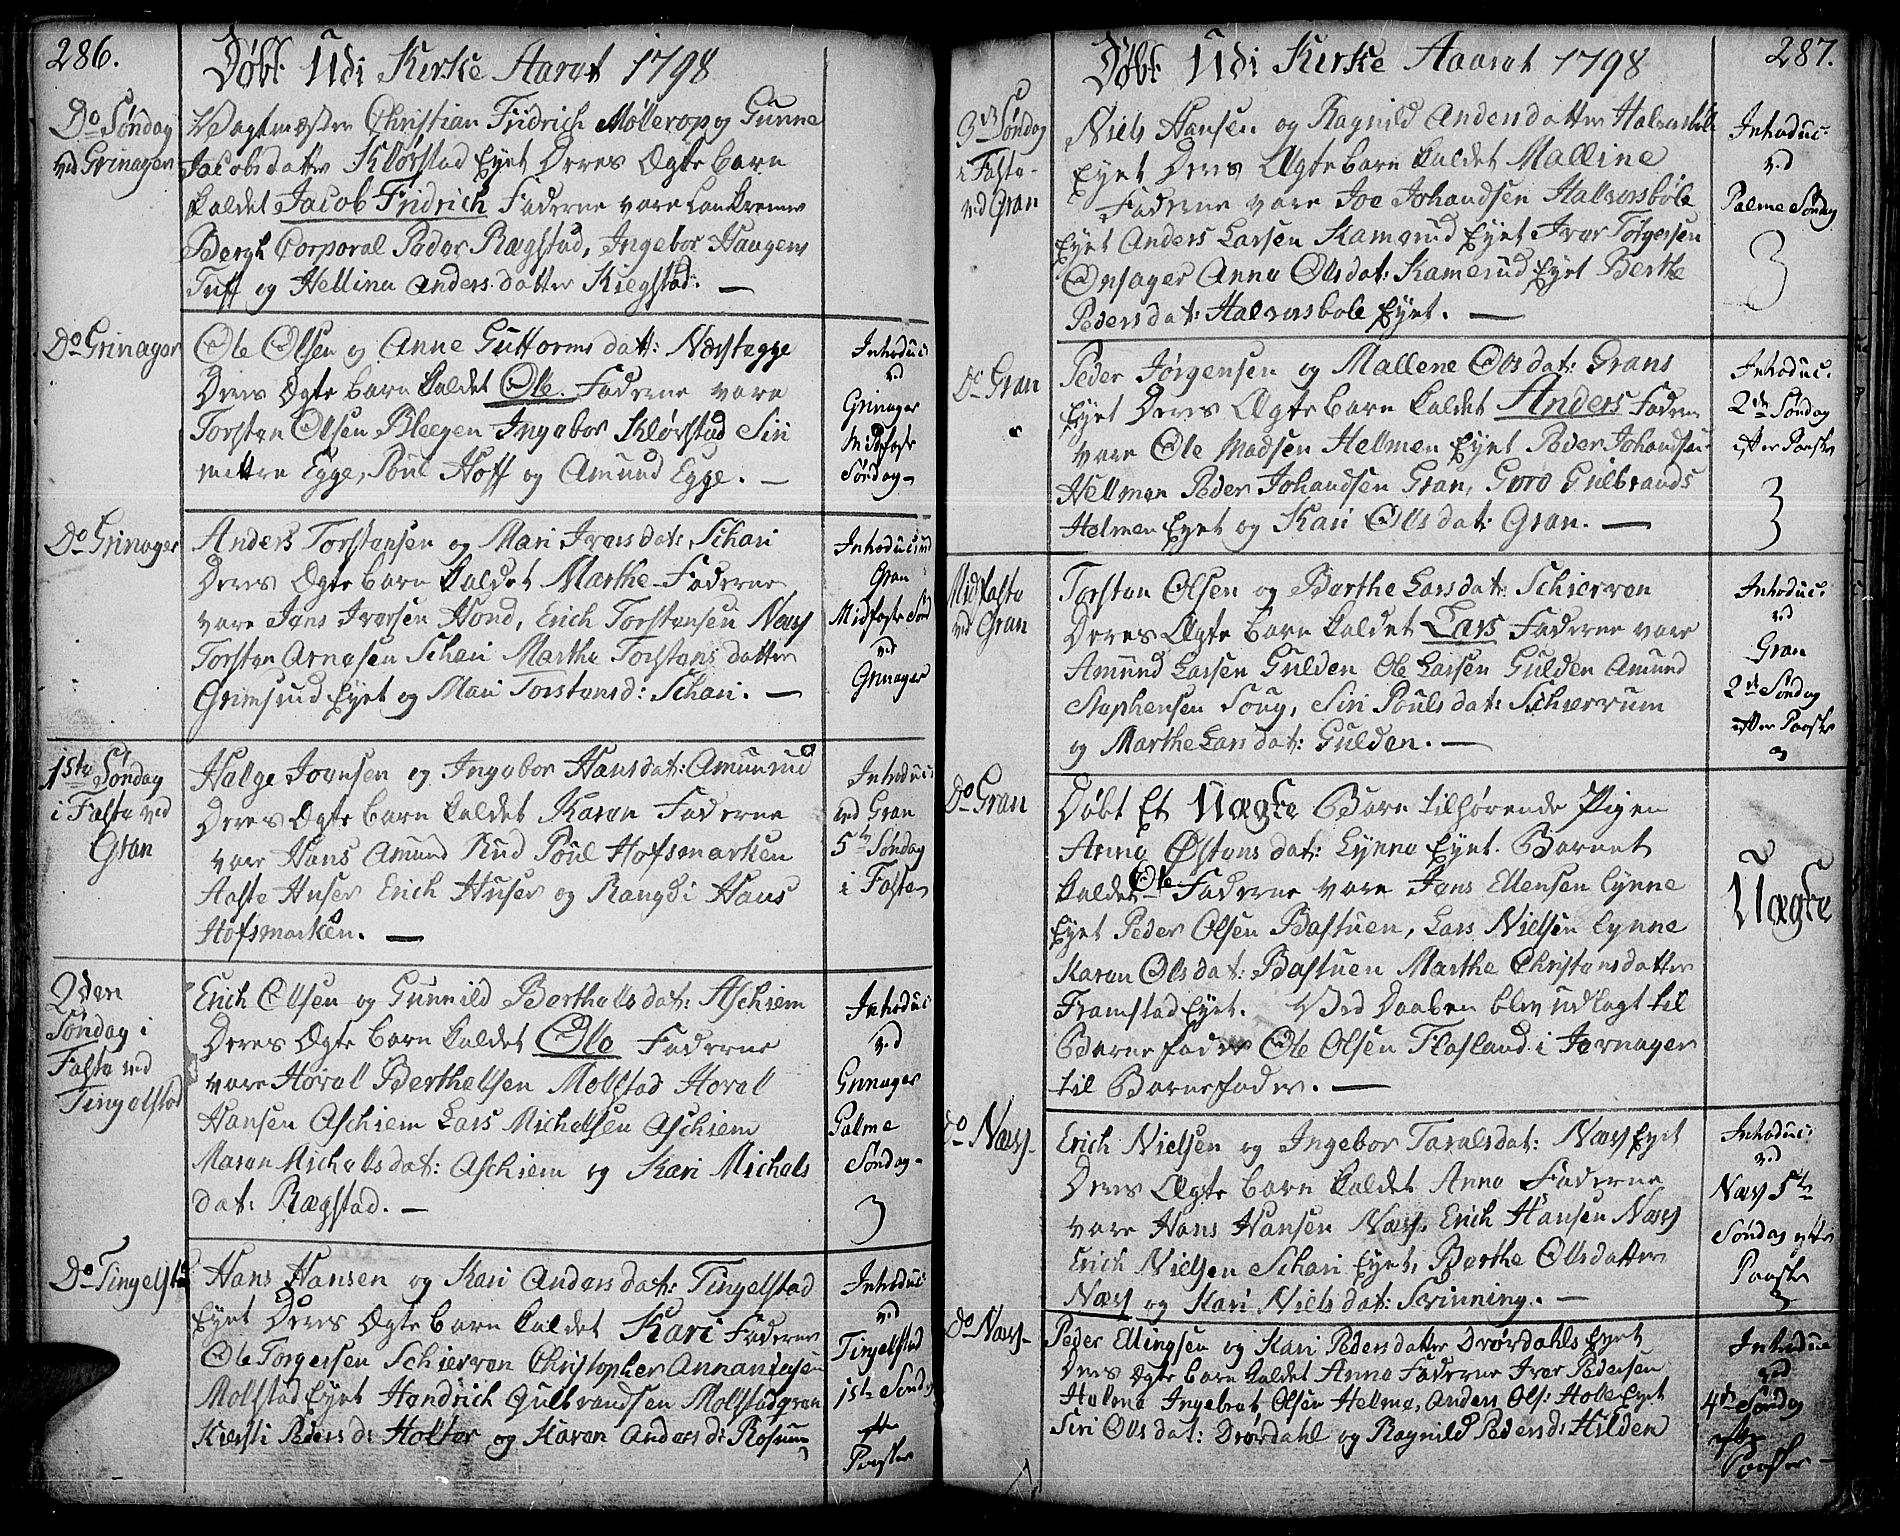 286.
Døbt Udi Kirke Aaret 1798
Do Søndag
ved Grinager
Vagtmæster Christian Fridrich Møllerop og Gunne
Jacobsdatter Klørstad Eyet Deres Ægte barn
kaldet Jacob Fridrich Faderne vare
Bergh Corporal Peder Rægstad, Ingebor Haugens
Tuff og Hellina Anders datter Kiegstad. —
Do Grinager
Ole Olsen og Anne Guttorms datt: Næstegge
Deres Ægte barn kaldet Ole. Faderne vare
Torsten Olsen Bleegen Ingebor Klørstad Siri
mittre Egge, Poul Hoff og Amund Egge. —
Introduc:
ved
Grinager
Midfaste
Søndag
Do Grinager
Anders Torstensen og Mari Iversdat: Schari
Deres Ægte barn kaldet Marthe Faderne
vare Jens Iversen Hond, Erich Torstensen Næss
Torsten Arnesen Schari Marthe Torstens datter
Grimsrud Eyet og Mari Torstensd: Schari. —
Introduc: ved
Gran
Midfaste Sønd
ved
Grinager
1ste Søndag
i Faste ved
Gran
Helge Iversen og Ingebor Hansdat: Amunrud
Deres Ægte barn kaldet Karen Faderne
vare Hans Amund Rud Poul Hofsmarken
Aaste Huser Erich Huser og Rangdi Hans
Hofsmarken. —
Introduc:
ved Gran
5te Søndag
i Faste
2den
Søndag i
Faste ved
Tingelstad
Erich Olsen og Gunnild Berthels dat: Aschiem
Deres Ægte barn kaldet Ole Faderne
vare Horal Berthelsen Molstad Horal
Hansen Aschiem Lars Michelsen Aschiem
Maren Michelsdat: Aschiem og Kari Michels
dat: Rægstad. —
Introduc:
ved
Grinager
Palme
Søndag
3
Do Tingelstad
Hans Hansen og Kari Anders dat: Tingelstad
Eyet Deres Ægte barn kaldet Kari Faderne
Ole Torgersen Schierven Christopher Annaniasen
Molstad Eyet Hendrich Gulbrandsen Molstad gran
Kiersti Pedersd: Holter og Karen Andersd: Rosrum
Introduc:
ved
Tingelstad
1ste Søndag
efter
Paaske
Døbt Udi Kirke Aaret 1798
287.
3de Søndag
i Faste
ved Gran
Niels Hansen og Ragnild Andersdatter Halvorsbøle
Eyet Deres Ægte barn kaldet Mallene
Faderne vare Joe Johandsen Halvorsbøle
Eyet Anders Larsen Kamerud Eyet Iver Torgersen
Opsager Anna Olsdat: Kamerud Eyet Berthe
Pedersdat: Halvorsbøle Eyet. —
Introduc:
ved
Palme Søndag
3
Do Gran
Peder Jørgensen og Mallene Olsdat: Grans
Eyet Deres Ægte barn kaldet Anders Faderne
vare Ole Madsen Hellmen Eyet Peder Johandsen
Hellmen Peder Johandsen Gran, Guro Gulbrands
Helmen Eyet og Kari Olsdat: Gran. —
Introduc:
2den Søndag
efter Paaske
3
Midfaste
ved Gran
Torsten Olsen og Berthe Larsdat: Schierven
Deres Ægte barn kaldet Lars Faderne vare
Amund Larsen Gulden Ole Larsen Gulden Amund
Stephensen Soug, Siri Poulsdat: Schierrum
og Marthe Larsdat: Gulden. —
Introduc:
ved
Gran
2den Søndag
efter Paaske
3
Do Gran
Døbt Et Uægte Barn tilhørende Pigen
Anne Østens dat: Lynne Eyet. Barnet
kaldet Ole Faderne vare Jens Ellensen Lynne
Eyet Peder Olsen Bastuen, Lars Nielsen Lynne
Karen Olsdat: Bastuen Marthe Christensdatter
Framstad Eyet. Ved Daaben blev udlagt til
Barnefader Ole Olsen Flasland i Jevnager
til Barnefader. —
Uægte
Do Næss
Erich Nielsen og Ingebor Taralsdat: Næss Eyet
Deres Ægte barn kaldet Anne Faderne
vare Hans Hansen Næss, Erich Hansen Næss
Erich Nielsen Schari Eyet, Berthe Olsdatter
Næss og Kari Nielsdat: Svinning. —
Introduc:
ved
Næss 5te
Søndag efter
Paaske
3
Do Næss
Peder Ellingsen og Kari Pedersdatter Drørdahls Eyet
Deres Ægte barn kaldet Anne Faderne Iver Pedersen
Helme Ingebret Olsen Helme, Anders Ols: Hole Eyet
Siri Olsdat: Drørdahl og Ragnild Pedersd: Hilden
Introduc
ved
4de Søndag
efter
Paaske